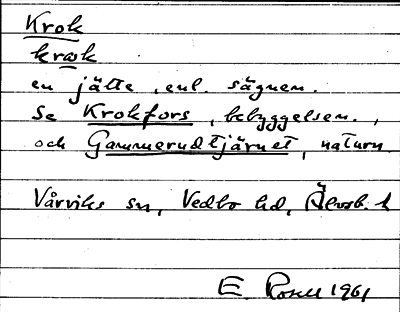 Krok
krok
en jätte, enl. sägnen.
Se Krokfors, bebyggelsen.,
och Gammerudtjärnet, naturn
Vårviks sn, Vedbo hd, Älvsb. l
E. Rosell 1961